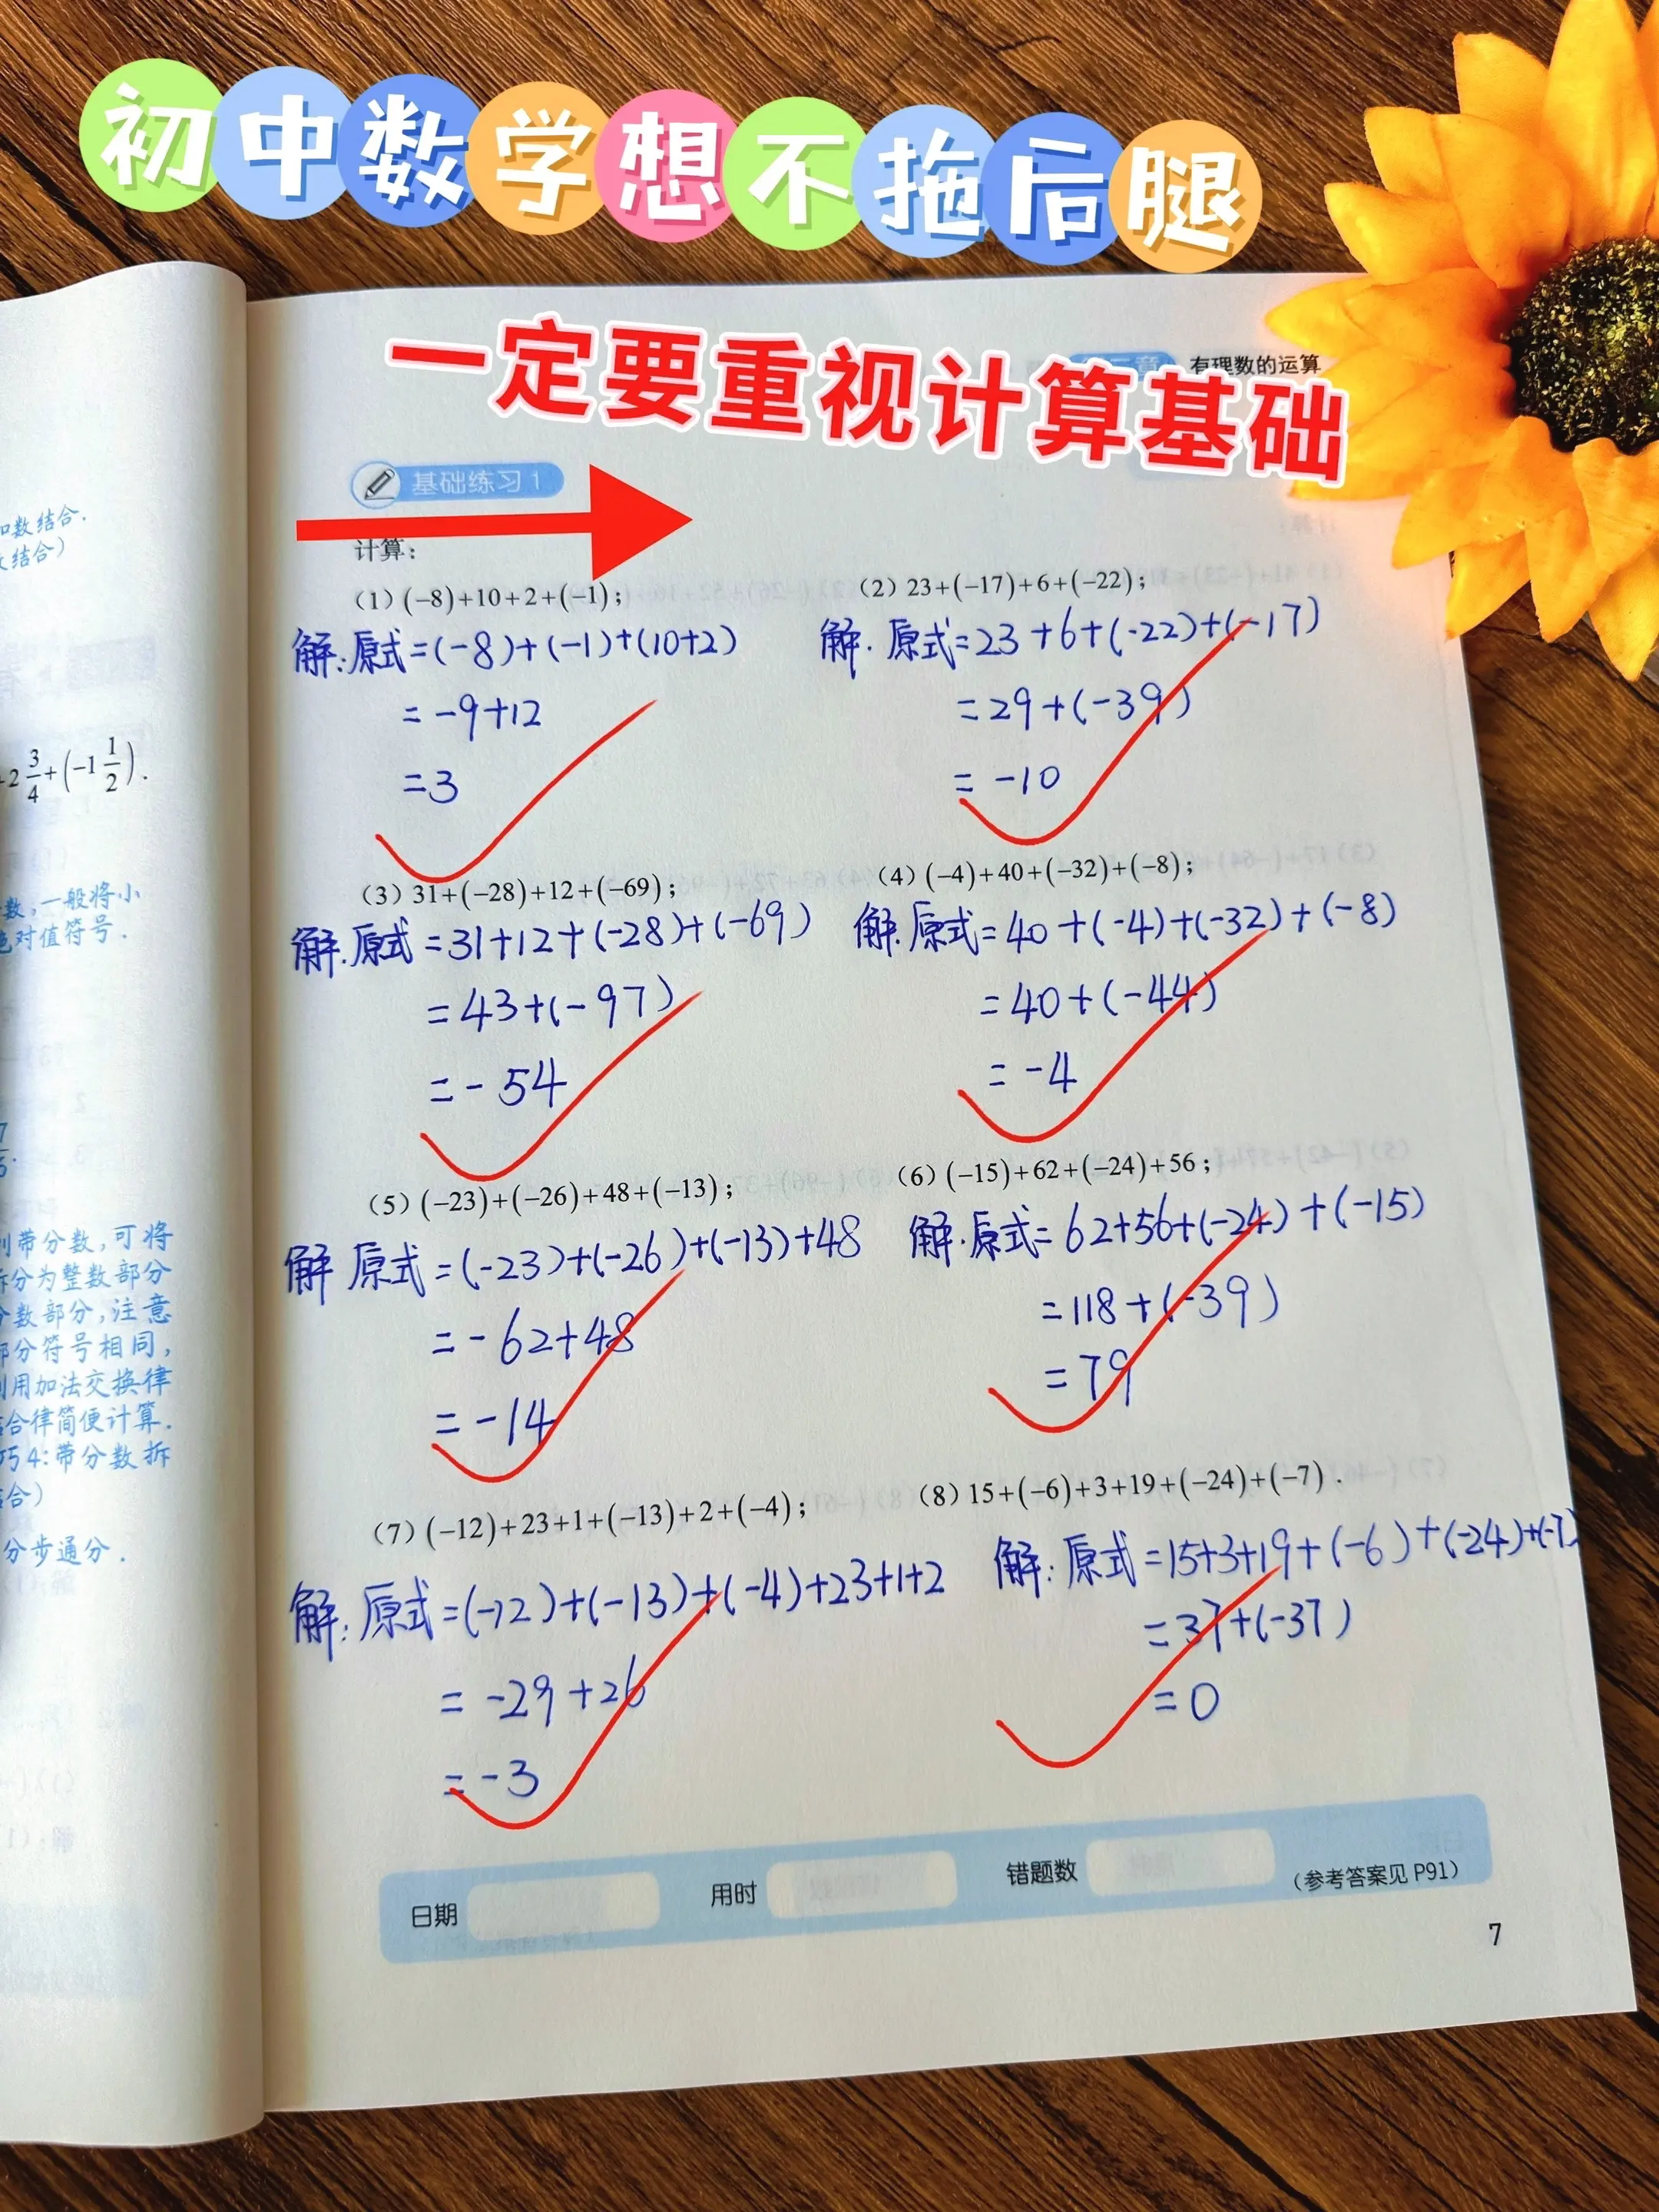 初中数学想不拖后腿
一定要重视计算基础
有理数的运算
基础练习1
计算：
（1）(−8)+10+2+(−1)；
解：原式=(-8)+(-1)+(10+2)
= -9+12
=3
（2）23+(−17)+6+(−22)；
解. 原式=23+6+(-22)+(-17)
=29+(-39)
= -10
（3）31+(−28)+12+(−69)；
解.原式=31+12+(-28)+(-69)
=43+(-97)
=-54
（4）(−4)+40+(−32)+(−8)；
解.原式=40+(-4)+(-32)+(-8)
=40+(-44)
= -4
（5）(−23)+(−26)+48+(−13)；
解 原式=(-23)+(-26)+(-13)+48
=-62+48
=-14
（6）(−15)+62+(−24)+56；
解.原式=62+56+(-24)+(-15)
=118+(-39)
=79
（7）(−12)+23+1+(−13)+2+(−4)；
解：原式=(-12)+(-13)+(-4)+23+1+2
= -29+26
=-3
（8）15+(−6)+3+19+(−24)+(−7).
解：原式=15+3+19+(-6)+(-24)+(-7)
=37+(-37)
=0
日期 用时 错题数 （参考答案见 P91）
7
数结合.
结合）
2 3/4+(−1 1/2).
数，一般将小
对值符号.
带分数，可将
分为整数部分
数部分，注意
部分符号相同，
用加法交换律
合律简便计算.
巧4：带分数拆
合）
分步通分.